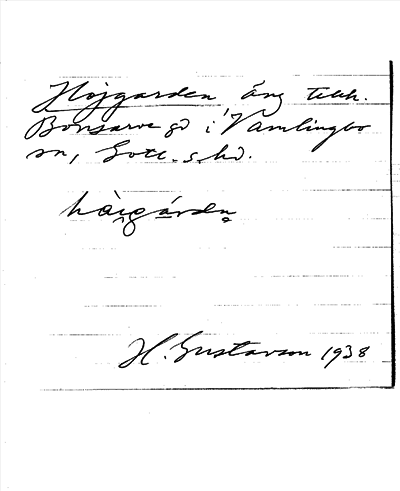 Höjgarden, äng tillh.
Bonsarve gd i Vamlingbo
sn, Gotl. s. hd.
hàigárden
H. Gustavson 1938